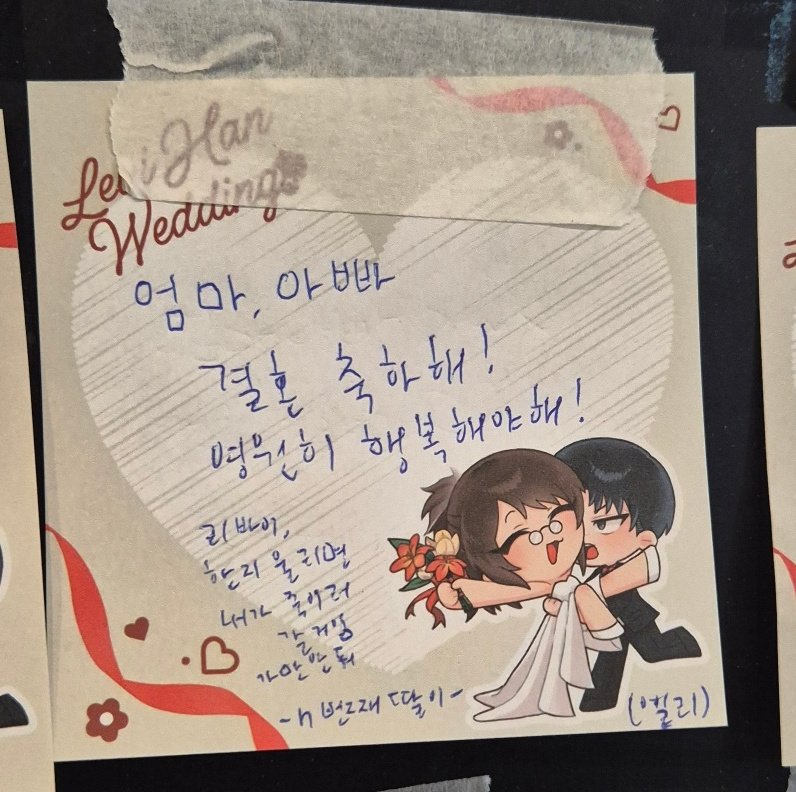 Levi Han
Wedding
엄마, 아빠
결혼 축하해!
영원히 행복해야해!
리바이,
한지 울리면
내가 죽이러
갈거임
가만안둬
- n번째 딸이 -
(엘리)